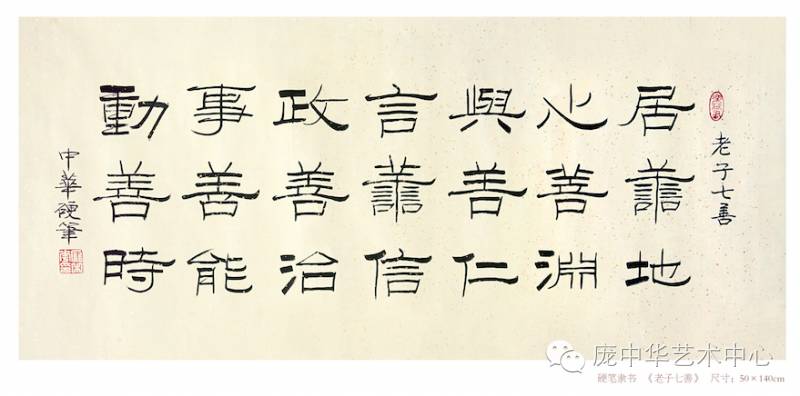 老子七善
居善地
心善淵
與善仁
言善信
政善治
事善能
動善時
中華硬筆
庞中华艺术中心
硬笔隶书 《老子七善》 尺寸：50×140cm